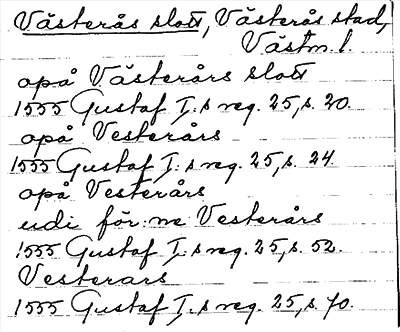 Västerås slott, Västerås stad,
Västm. l.
opå Västerårs slott
1555 Gustaf I:s reg. 25, s. 20.
opå Vesterårs
1555 Gustaf I:s reg. 25, s. 24.
opå Vesterårs
udi för:ne Vesterårs
1555 Gustaf I:s reg. 25, s. 52.
Vesterars
1555 Gustaf I:s reg. 25, s. 70.